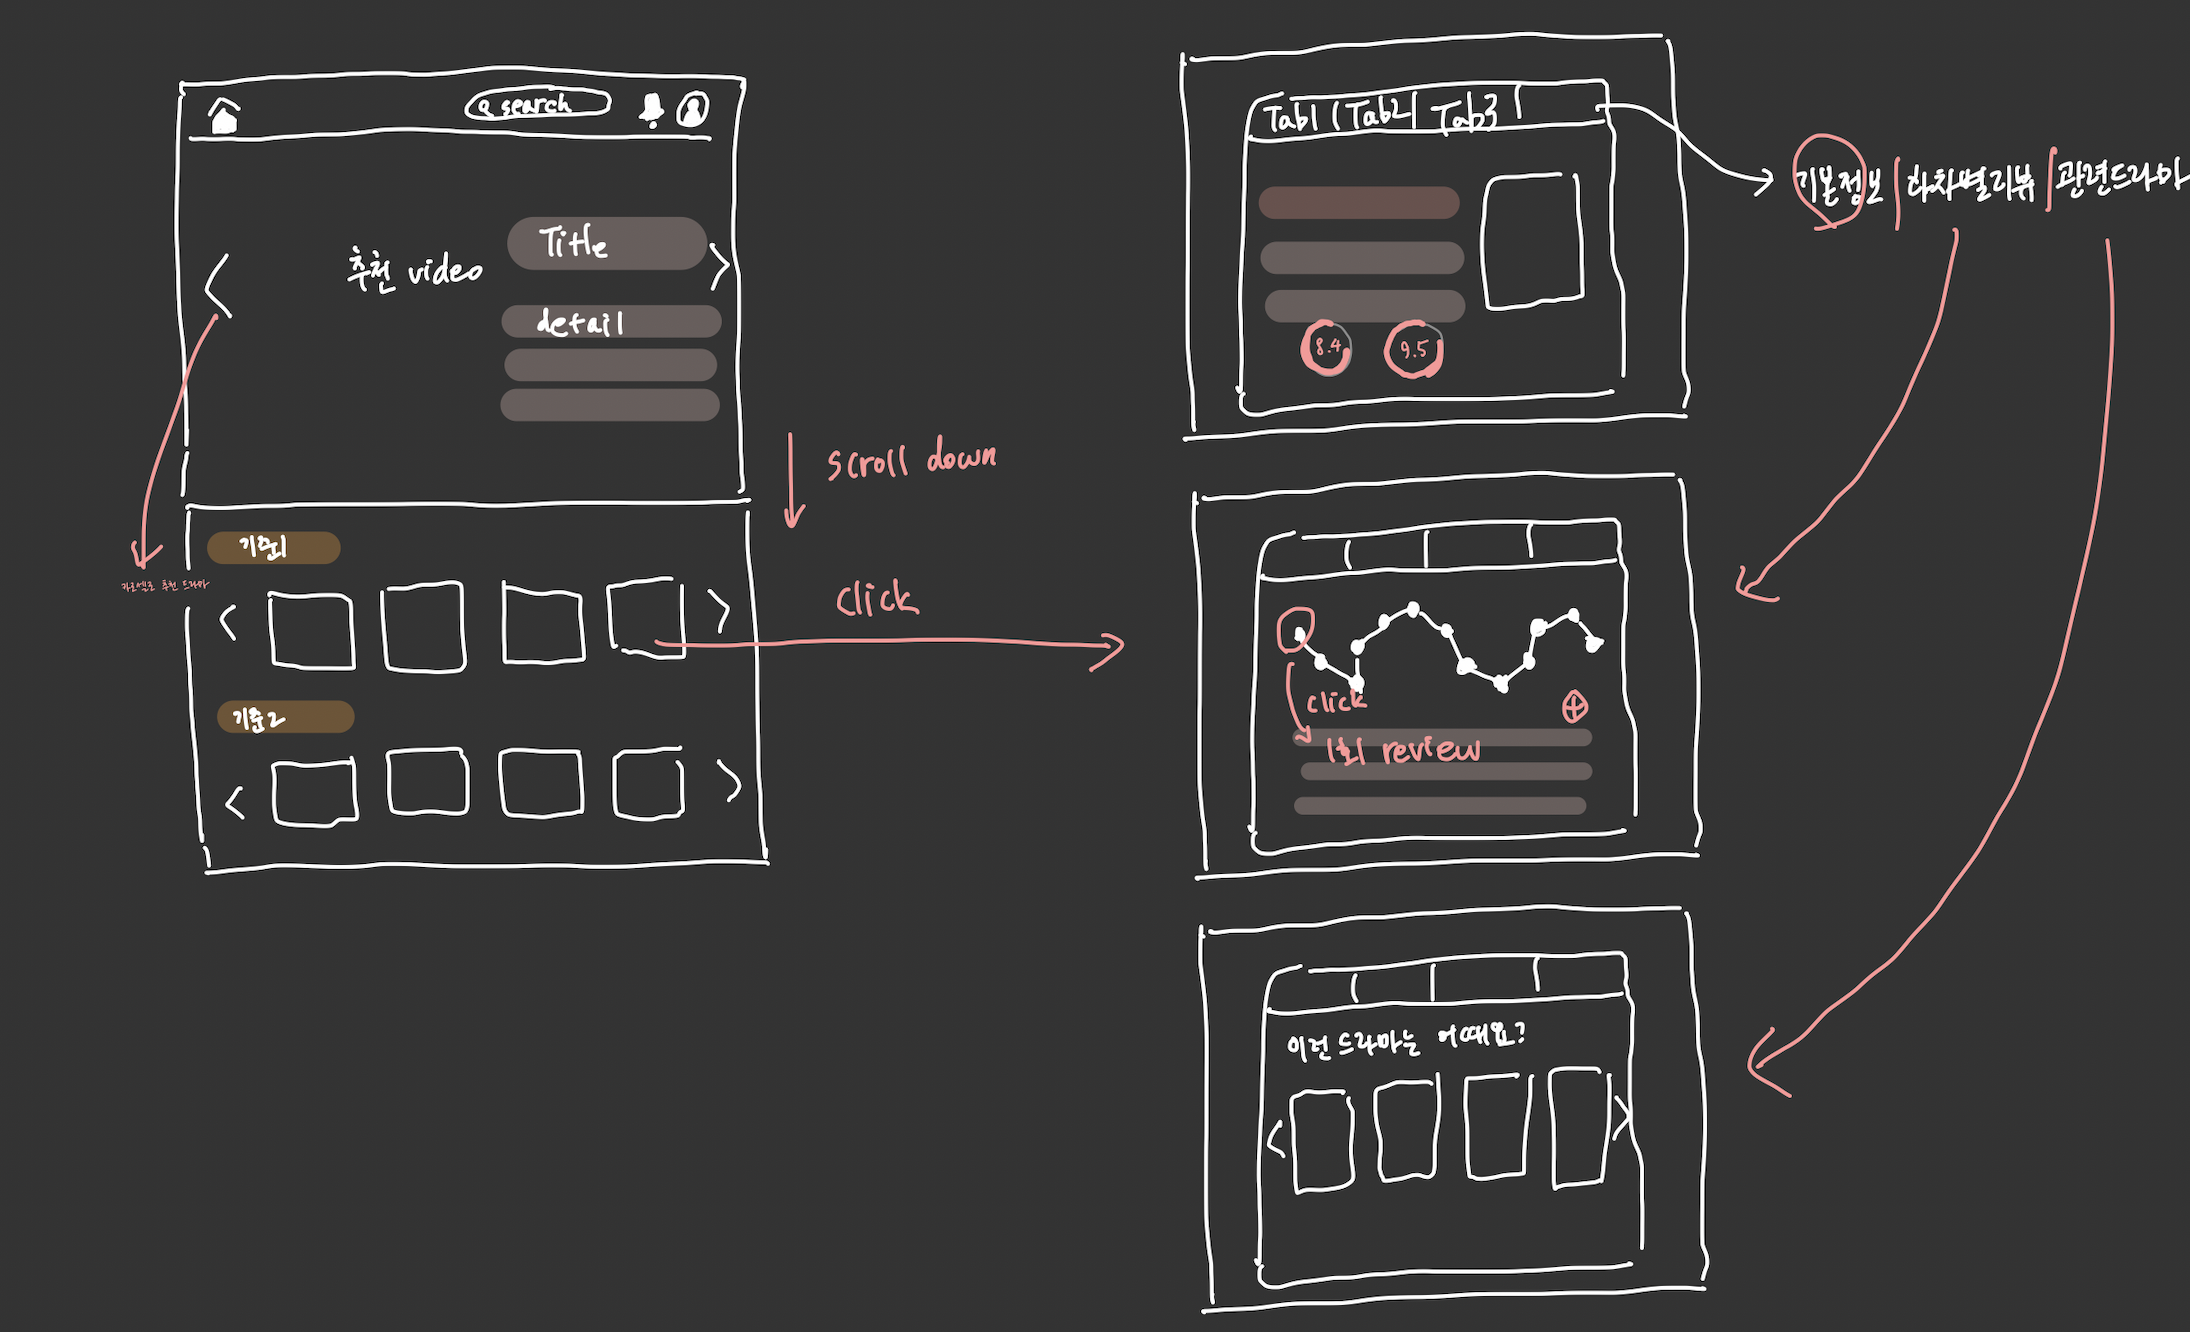 search
추천 video
Title
detail
scroll down
기준1
카로셀로 추천 드라마
click
기준2
Tab1 | Tab2 | Tab3
기본정보 | 회차별리뷰 | 관련드라마
8.4
9.5
click
1회 review
이런 드라마는 어때요?